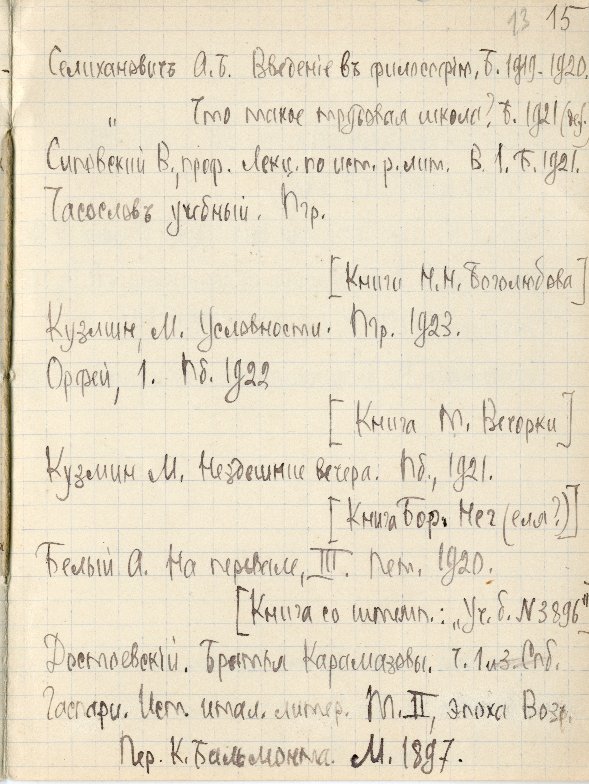 13 15
Селихановичъ А.Б. Введенiе въ философiю, Б. 1919-1920.
„ Что такое трудовая школа? Б. 1921
Сиповский В., проф. Лекц. по ист. р. лит. В. 1. Б. 1921.
Часословъ учебный. Пгр.
[Книги Н.Н. Боголюбова]
Кузмин, М. Условности. Пгр. 1923.
Орфей, 1. Пб. 1922
[Книга Т. Вечорки]
Кузмин М. Нездешние вечера. Пб., 1921.
[Книга Бор. Нег(елл?)]
Белый А. На перевале, III. Пет. 1920.
[Книга со штемп.: „Уч. б. N 3896"]
Достоевскiй. Братья Карамазовы. Ч. 1 Спб.
Гаспари. Ист. итал. литер. Т. II, эпоха Возр.
Пер. К. Бальмонта. М. 1897.